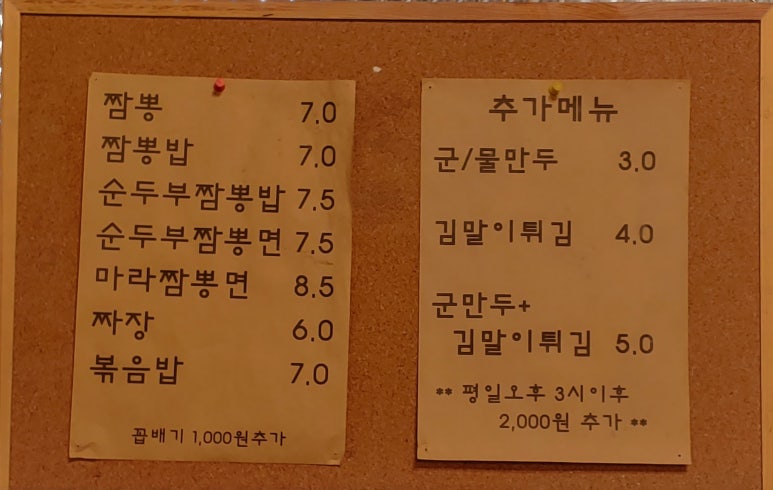 짬뽕 7.0
짬뽕밥 7.0
순두부짬뽕밥 7.5
순두부짬뽕면 7.5
마라짬뽕면 8.5
짜장 6.0
볶음밥 7.0
꼽배기 1,000원추가
추가메뉴
군/물만두 3.0
김말이튀김 4.0
군만두+
김말이튀김 5.0
** 평일오후 3시이후
2,000원 추가 **